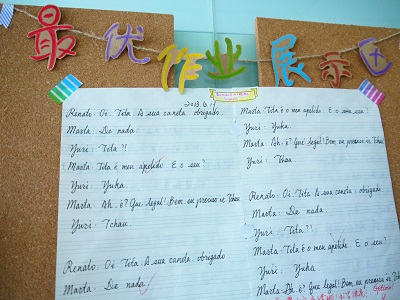 最优作业展示区
2013.6.4
Renato: Oi. Tita. A sua caneta. obrigado
Marta: Die nada.
Yuri: Tita?!
Marta: Tita é meu apelido. E o seu?
Yuri: Yuka.
Marta: Ah. é? Que legal! Bem. eu preciso ir. Tchau
Yuri: Tchau.
Renato: Oi. Tita. A sua caneta. obrigado
Marta: Die nada.
Marta: Tita é o meu apelido. E o seu?
Yuri: Yuka
Marta: Ah. é? Que legal! Bem. eu preciso ir. Tchau
Yuri: Tchau.
Renato: Oi. Tita. A sua caneta. obrigado
Marta: Die nada.
Yuri: Tita?!
Marta: Tita é o meu apelido. E o seu?
Yuri: Yuka.
Marta: Ah. é? Que legal! Bem. eu preciso ir. Tchau